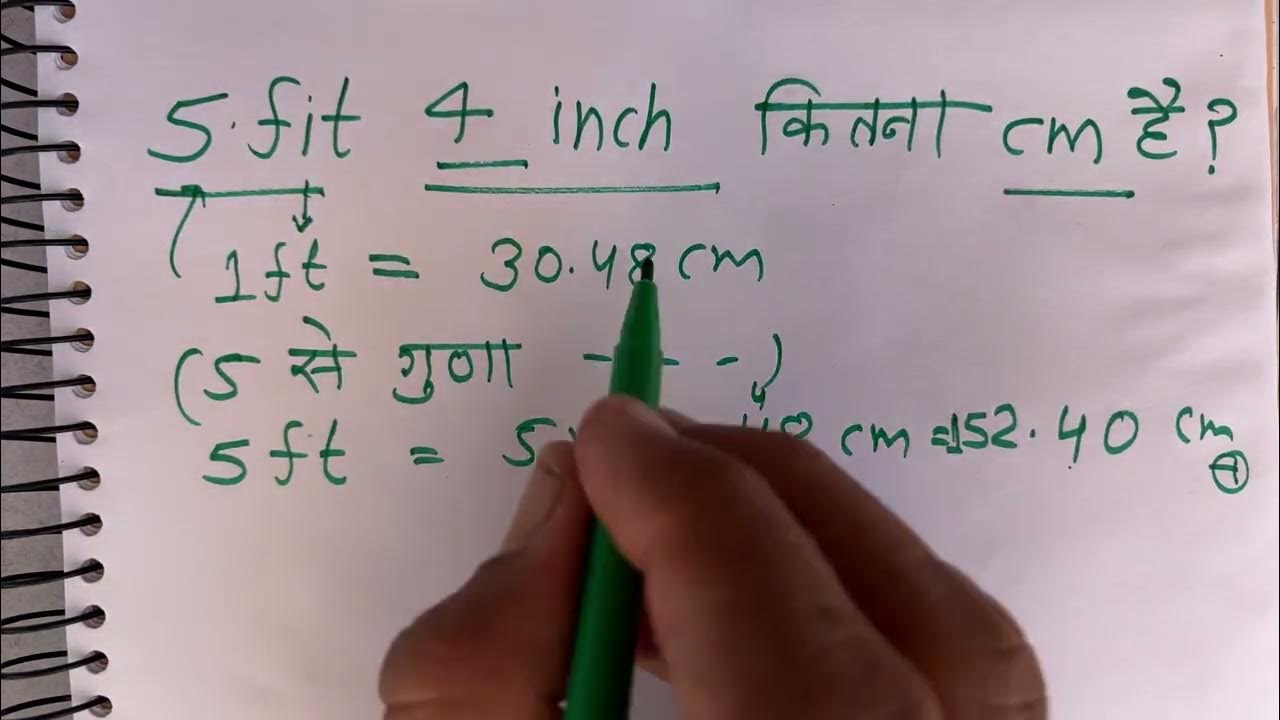 5.fit 4 inch कितना cm है?
1ft = 30.48 cm
(5 से गुणा - - -)
5ft = 5 cm =152.40 cm